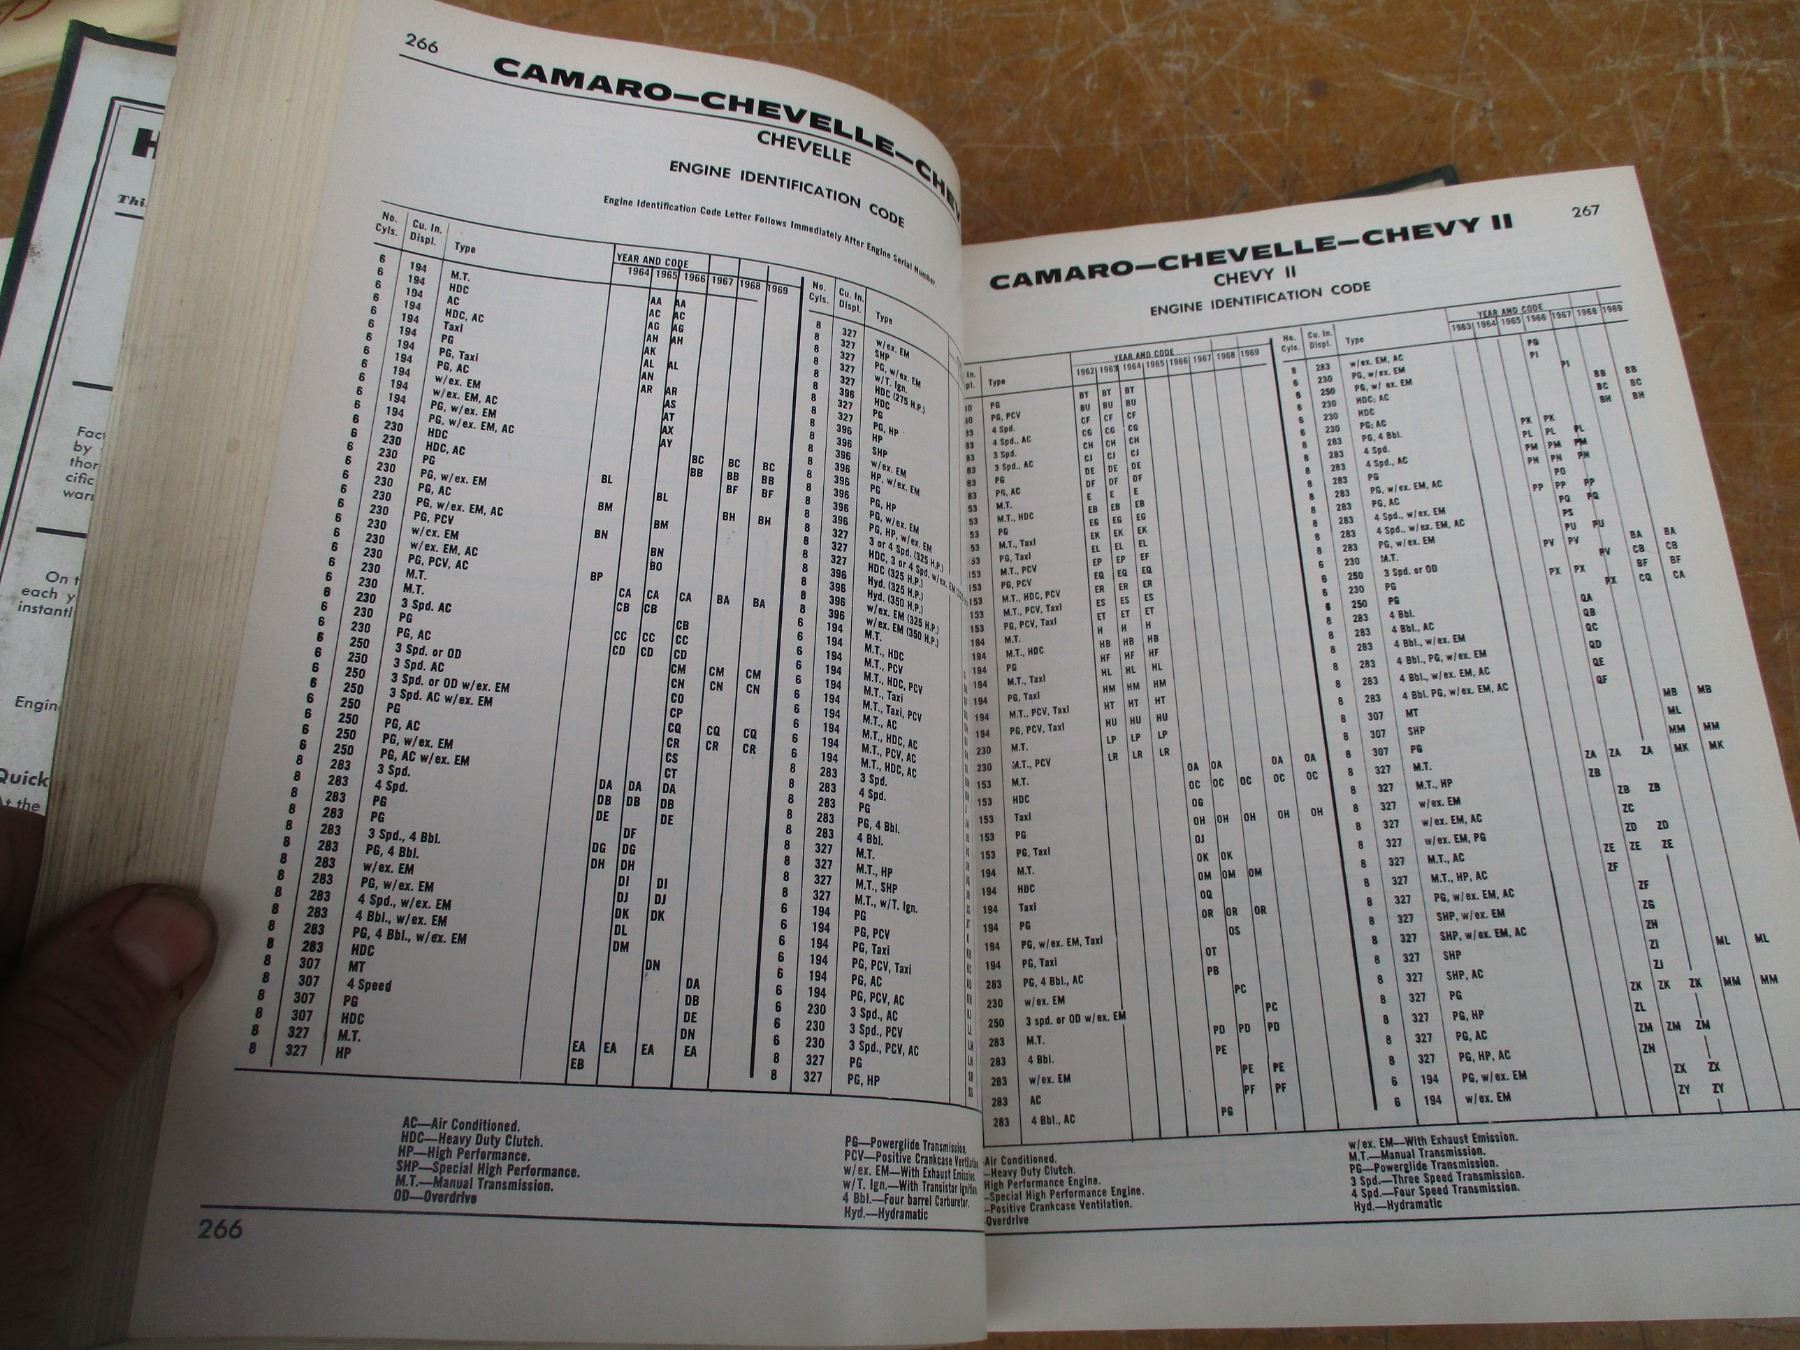 266
CAMARO—CHEVELLE—CHEV
CHEVELLE
ENGINE IDENTIFICATION CODE
Engine Identification Code Letter Follows Immediately After Engine Serial Number
No. Cyls. Cu. In. Displ. Type YEAR AND CODE
1964 1965 1966 1967 1968 1969
6 194 M.T. AA AA
6 194 HDC AC AC
6 194 AC AG AG
6 194 HDC, AC AH AH
6 194 Taxi AK
6 194 PG AL AL
6 194 PG, Taxi AN
6 194 PG, AC AR AR
6 194 w/ex. EM AS
6 194 w/ex. EM, AC AT
6 194 PG, w/ex. EM AX
6 194 PG, w/ex. EM, AC AY
6 230 HDC BC BC BC
6 230 HDC, AC BB BB BB
6 230 PG BL BF BF
6 230 PG, w/ex. EM BL
6 230 PG, AC BM BH BH
6 230 PG, w/ex. EM, AC BM
6 230 PG, PCV BN
6 230 w/ex. EM BN
6 230 w/ex. EM, AC BO
6 230 PG, PCV, AC BP
6 230 M.T. CA CA CA BA BA
6 230 M.T. CB CB
6 230 3 Spd. AC CB
6 230 PG CC CC CC
6 230 PG, AC CD CD CD
6 250 3 Spd. or OD CM CM CM
6 250 3 Spd. AC CN CN CN
6 250 3 Spd. or OD w/ex. EM CO
6 250 3 Spd. AC w/ex. EM CP
6 250 PG CQ CQ CQ
6 250 PG, AC CR CR CR
6 250 PG, w/ex. EM CS
6 250 PG, AC w/ex. EM CT
8 283 3 Spd. DA DA DA
8 283 4 Spd. DB DB DB
8 283 PG DE DE
8 283 PG DF
8 283 3 Spd., 4 Bbl. DG DG
8 283 PG, 4 Bbl. DH DH
8 283 w/ex. EM DI DI
8 283 PG, w/ex. EM DJ DJ
8 283 4 Spd., w/ex. EM DK DK
8 283 4 Bbl., w/ex. EM DL
8 283 PG, 4 Bbl., w/ex. EM DM
8 283 HDC DN
8 307 MT DA
8 307 4 Speed DB
8 307 PG DE
8 307 HDC DN
8 327 M.T. EA EA EA EA
8 327 HP EB
No. Cyls. Cu. In. Displ. Type
8 327 w/ex. EM
8 327 SHP
8 327 PG, w/ex. EM
8 327 w/T. Ign.
8 396 HDC (275 H.P.)
8 327 HDC
8 327 PG
8 396 PG, HP
8 396 HP
8 396 SHP
8 396 w/ex. EM
8 396 HP, w/ex. EM
8 396 PG
8 396 PG, HP
8 396 PG, w/ex. EM
PG, HP, w/ex. EM
3 or 4 Spd. (325 H.P.)
HDC, 3 or 4 Spd. w/ex. EM
HDC (325 H.P.)
Hyd. (325 H.P.)
Hyd. (350 H.P.)
w/ex. EM (325 H.P.)
w/ex. EM (350 H.P.)
6 194 M.T.
6 194 M.T., HDC
6 194 M.T., PCV
6 194 M.T., HDC, PCV
6 194 M.T., Taxi
6 194 M.T., Taxi, PCV
6 194 M.T., AC
6 194 M.T., HDC, AC
6 194 M.T., PCV, AC
6 194 M.T., HDC, AC
8 283 3 Spd.
8 283 4 Spd.
8 283 PG
8 283 PG, 4 Bbl.
8 283 4 Bbl.
8 327 M.T.
8 327 M.T., HP
8 327 M.T., SHP
8 327 M.T., w/T. Ign.
6 194 PG
6 194 PG, PCV
6 194 PG, Taxi
6 194 PG, PCV, Taxi
6 194 PG, AC
6 194 PG, PCV, AC
6 230 3 Spd., AC
6 230 3 Spd., PCV
6 230 3 Spd., PCV, AC
8 327 PG
8 327 PG, HP
AC—Air Conditioned.
HDC—Heavy Duty Clutch.
HP—High Performance.
SHP—Special High Performance.
M.T.—Manual Transmission.
OD—Overdrive
PG—Powerglide Transmission.
PCV—Positive Crankcase Ventilation
w/ex. EM—With Exhaust Emission
w/T. Ign.—With Transistor Ignition
4 Bbl.—Four barrel Carburetor.
Hyd.—Hydramatic
266
267
CAMARO—CHEVELLE—CHEVY II
CHEVY II
ENGINE IDENTIFICATION CODE
In. pl. Type YEAR AND CODE
1962 1963 1964 1965 1966 1967 1968 1969
PG BT BT BT
PG, PCV BU BU BU
4 Spd. CF CF CF
4 Spd., AC CG CG CG
3 Spd. CH CH CH
3 Spd., AC CJ CJ CJ
PG DE DE DE
PG, AC DF DF DF
M.T. E E E
M.T., HDC EB EB EB
PG EG EG EG
M.T., Taxi EK EK EK
PG, Taxi EL EL EL
M.T., PCV EP EP EF
PG, PCV EQ EQ EQ
153 M.T., HDC, PCV ER ER ER
153 M.T., PCV, Taxi ES ES ES
153 PG, PCV, Taxi ET ET ET
194 M.T. H H H
194 M.T., HDC HB HB HB
194 PG HF HF HF
194 M.T., Taxi HL HL HL
194 PG, Taxi HM HM HM
194 M.T., PCV, Taxi HT HT HT
194 PG, PCV, Taxi HU HU HU
230 M.T. LP LP LP
230 M.T., PCV LR LR LR
153 M.T. OA OA OA OA
153 HDC OC OC OC OC OC
153 Taxi OG
153 PG OH OH OH OH OH
153 PG, Taxi OJ
194 M.T. OK OK
194 HDC OM OM OM
194 Taxi OQ
194 PG OR OR OR
194 PG, w/ex. EM, Taxi OS
194 PG, Taxi OT
283 PG, 4 Bbl., AC PB
230 w/ex. EM PC
250 3 spd. or OD w/ex. EM PC
283 M.T. PD PD PD
283 4 Bbl. PE
283 w/ex. EM PE PE
283 AC PF PF
283 4 Bbl., AC PG
No. Cyls. Cu. In. Displ. Type YEAR AND CODE
1963 1964 1965 1966 1967 1968 1969
8 283 w/ex. EM, AC PG
6 230 PG, w/ex. EM PI
6 250 PG, w/ ex. EM PI
6 230 HDC, AC BB BB
6 230 HDC BC BC
6 230 PG, AC BH BH
8 283 PG, 4 Bbl. PK PK
8 283 4 Spd. PL PL PL
8 283 4 Spd., AC PM PM PM
8 283 PG PN PN PN
8 283 PG, w/ex. EM, AC PO
8 283 PG, AC PP PP PP
8 283 4 Spd., w/ex. EM PQ PQ
8 283 4 Spd., w/ex. EM, AC PS
8 283 PG, w/ex. EM PU PU
6 230 M.T. PV PV BA BA
6 250 3 Spd. or OD PV CB CB
6 230 PG PX PX BF BF
6 250 PG PX CQ CA
8 283 4 Bbl. QA
8 283 4 Bbl., AC QB
8 283 4 Bbl., w/ex. EM QC
8 283 4 Bbl., PG, w/ex. EM QD
8 283 4 Bbl., w/ex. EM, AC QE
8 283 4 Bbl. PG, w/ex. EM, AC QF
8 307 MT MB MB
8 307 SHP ML
8 307 PG MM MM
8 327 M.T. ZA ZA ZA MK MK
8 327 M.T., HP ZB
8 327 w/ex. EM ZB ZB
8 327 w/ex. EM, AC ZC
8 327 w/ex. EM, PG ZD ZD
8 327 M.T., AC ZE ZE ZE
8 327 M.T., HP, AC ZF
8 327 PG, w/ex. EM, AC ZF
8 327 SHP, w/ex. EM ZG
8 327 SHP, w/ex. EM, AC ZH
8 327 SHP ZI ML ML
8 327 SHP, AC ZJ
8 327 PG ZK ZK ZK MM MM
8 327 PG, HP ZL
8 327 PG, AC ZM ZM ZM
8 327 PG, HP, AC ZN
6 194 PG, w/ex. EM ZX ZX
6 194 w/ex. EM ZY ZY
Air Conditioned.
—Heavy Duty Clutch.
High Performance Engine.
—Special High Performance Engine.
—Positive Crankcase Ventilation.
Overdrive
w/ex. EM—With Exhaust Emission.
M.T.—Manual Transmission.
PG—Powerglide Transmission.
3 Spd.—Three Speed Transmission.
4 Spd.—Four Speed Transmission.
Hyd.—Hydramatic
H
Thi
Fac
by
thor
cific
warr
On t
each y
instantl
Engin
Quick
At the